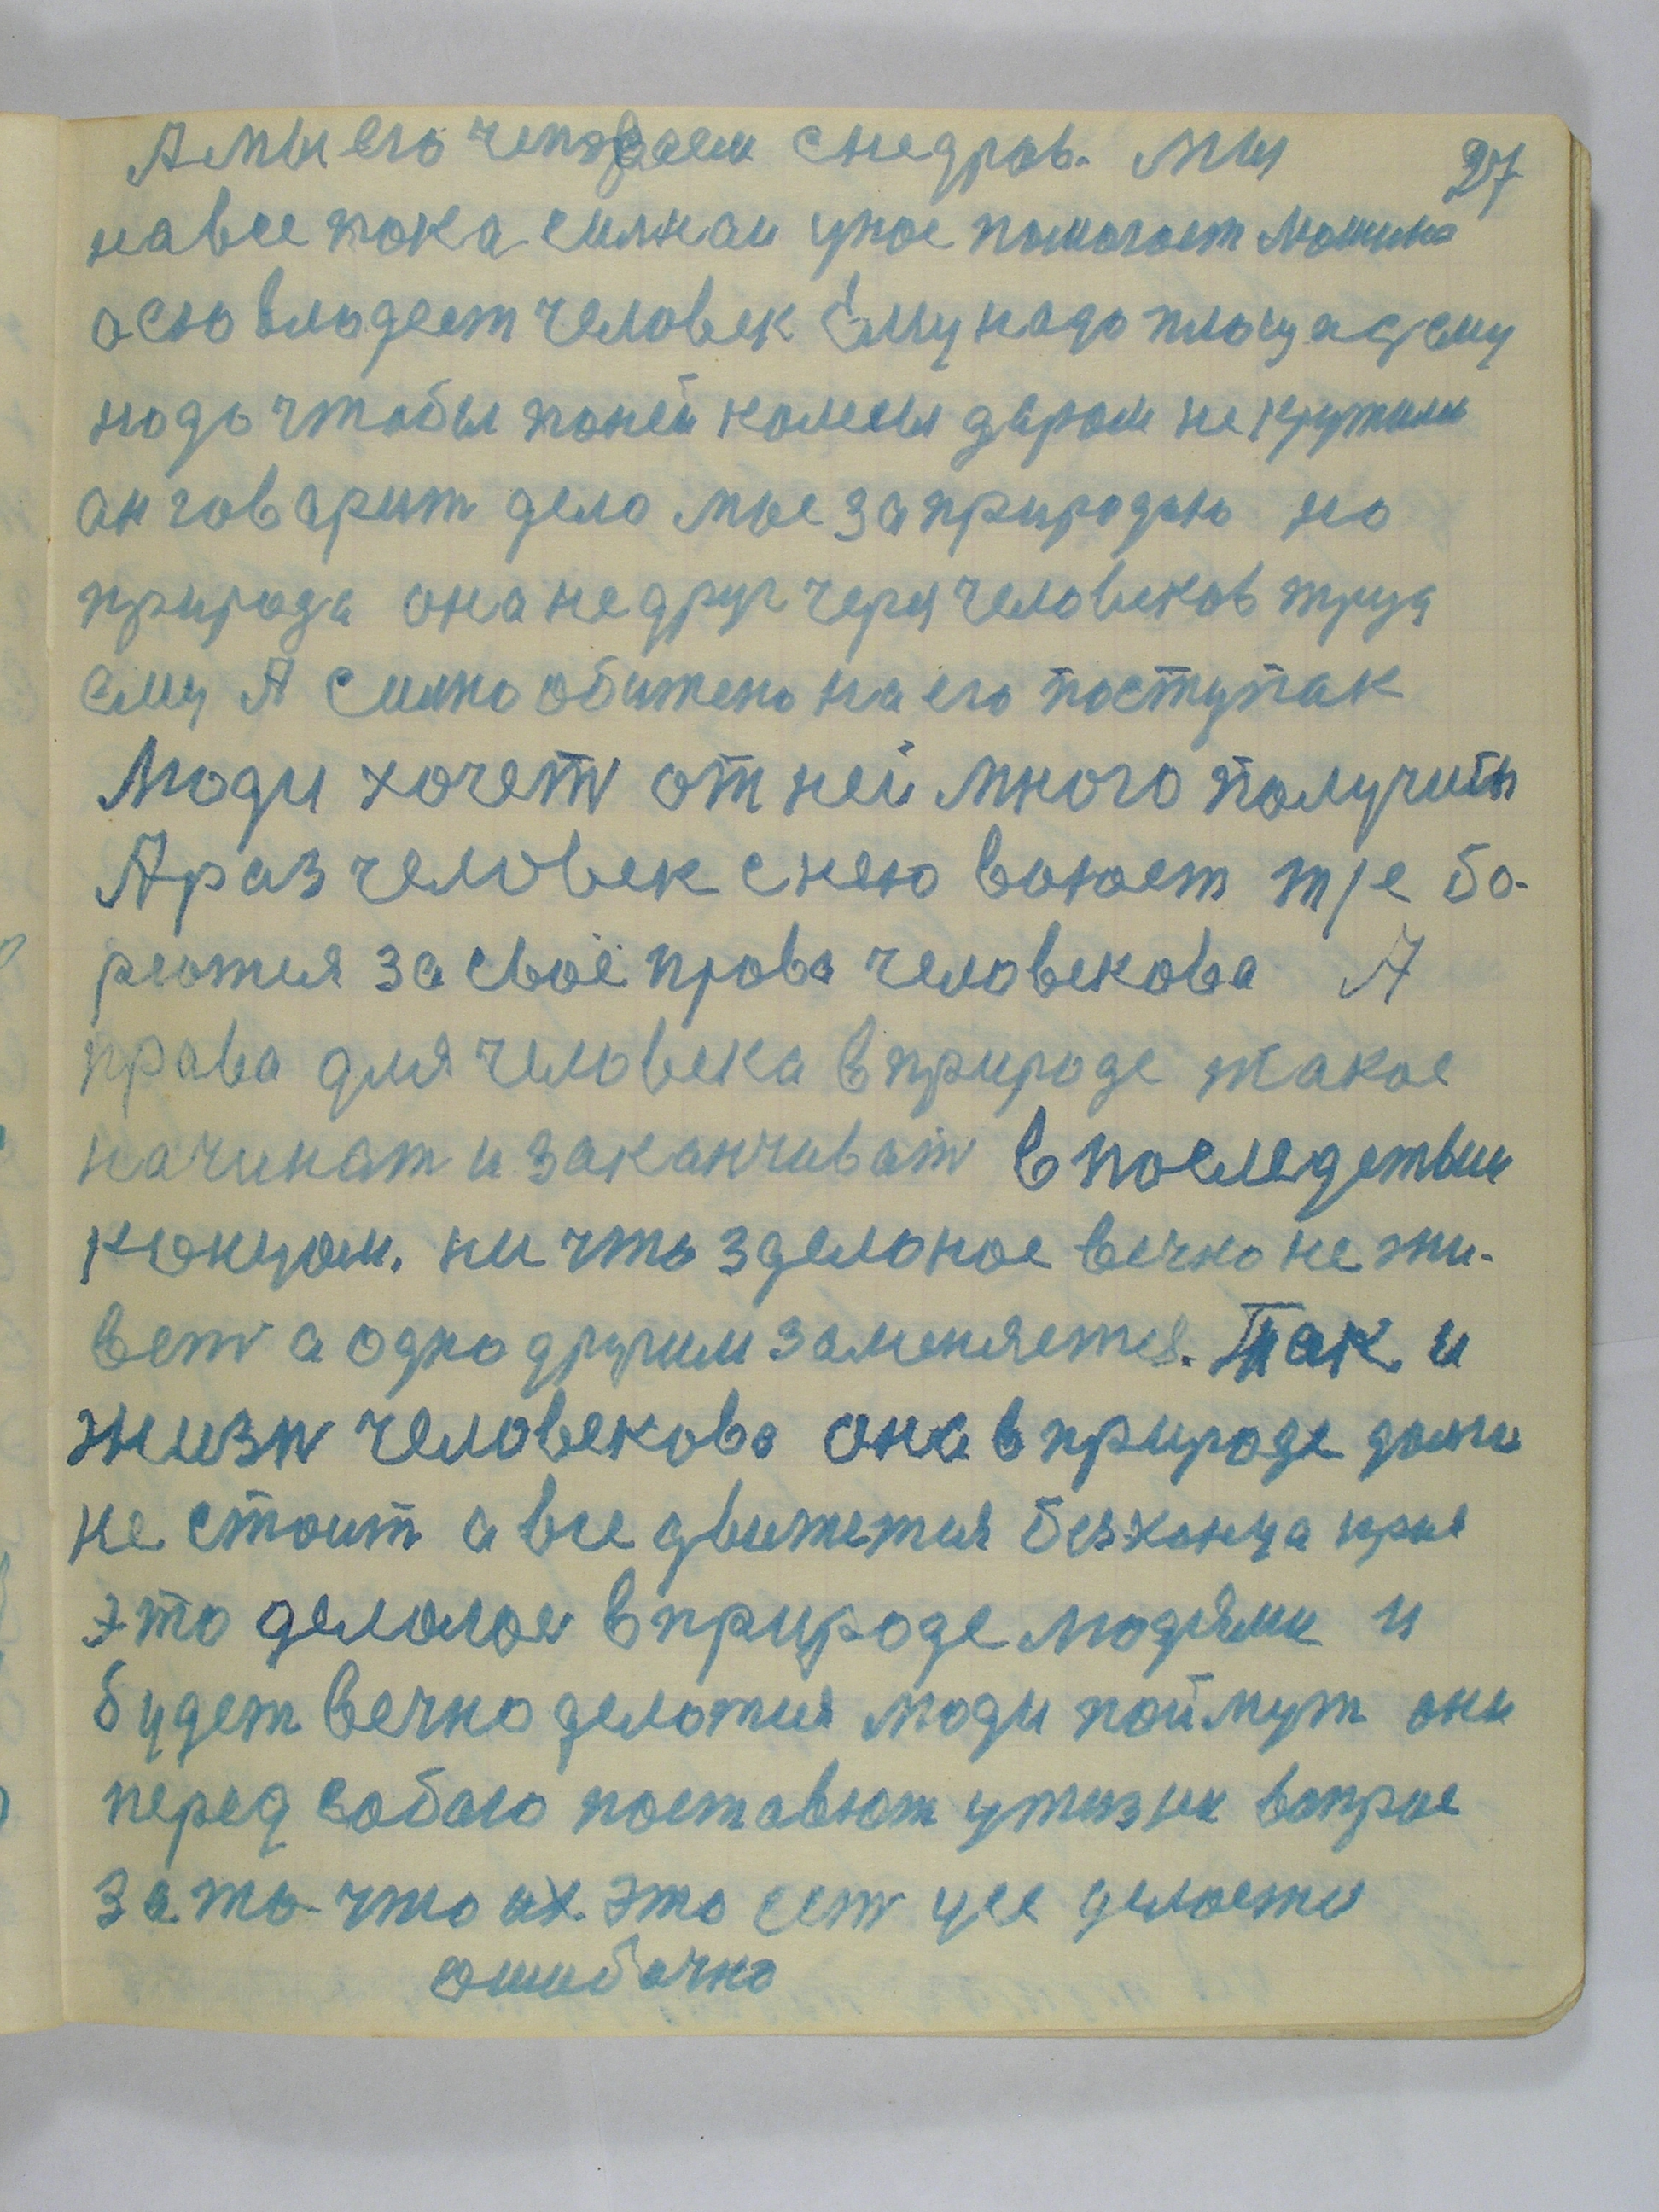 А мы его черпаем с недров. Мы
27
на все тока силнаи унос помогает машина
а сею владеет человек Ему надо площадь ему
надо чтобы поней колесы даром не крутили
ан говарит дело мое за природаю но
природа она не друг через человеков труд
ему А силно обижено на его поступак
Люди хочет от ней много получить
А раз человек с нею воюет т/е бо-
рютия за своё право человекова А
права для человека в природе такое
начинат и заканчиват в последетвии
концом. ни что зделоное вечно не жи-
вет а одно другим заменяется. Так и
жизн человекова она в природе долго
не стоит а все движетия без конца
это делалос в природе людями и
будет вечно делатия люди поймут они
перед собаю поставют у жизни вопрос
за то что их это ест усе делаетс
ошибочно